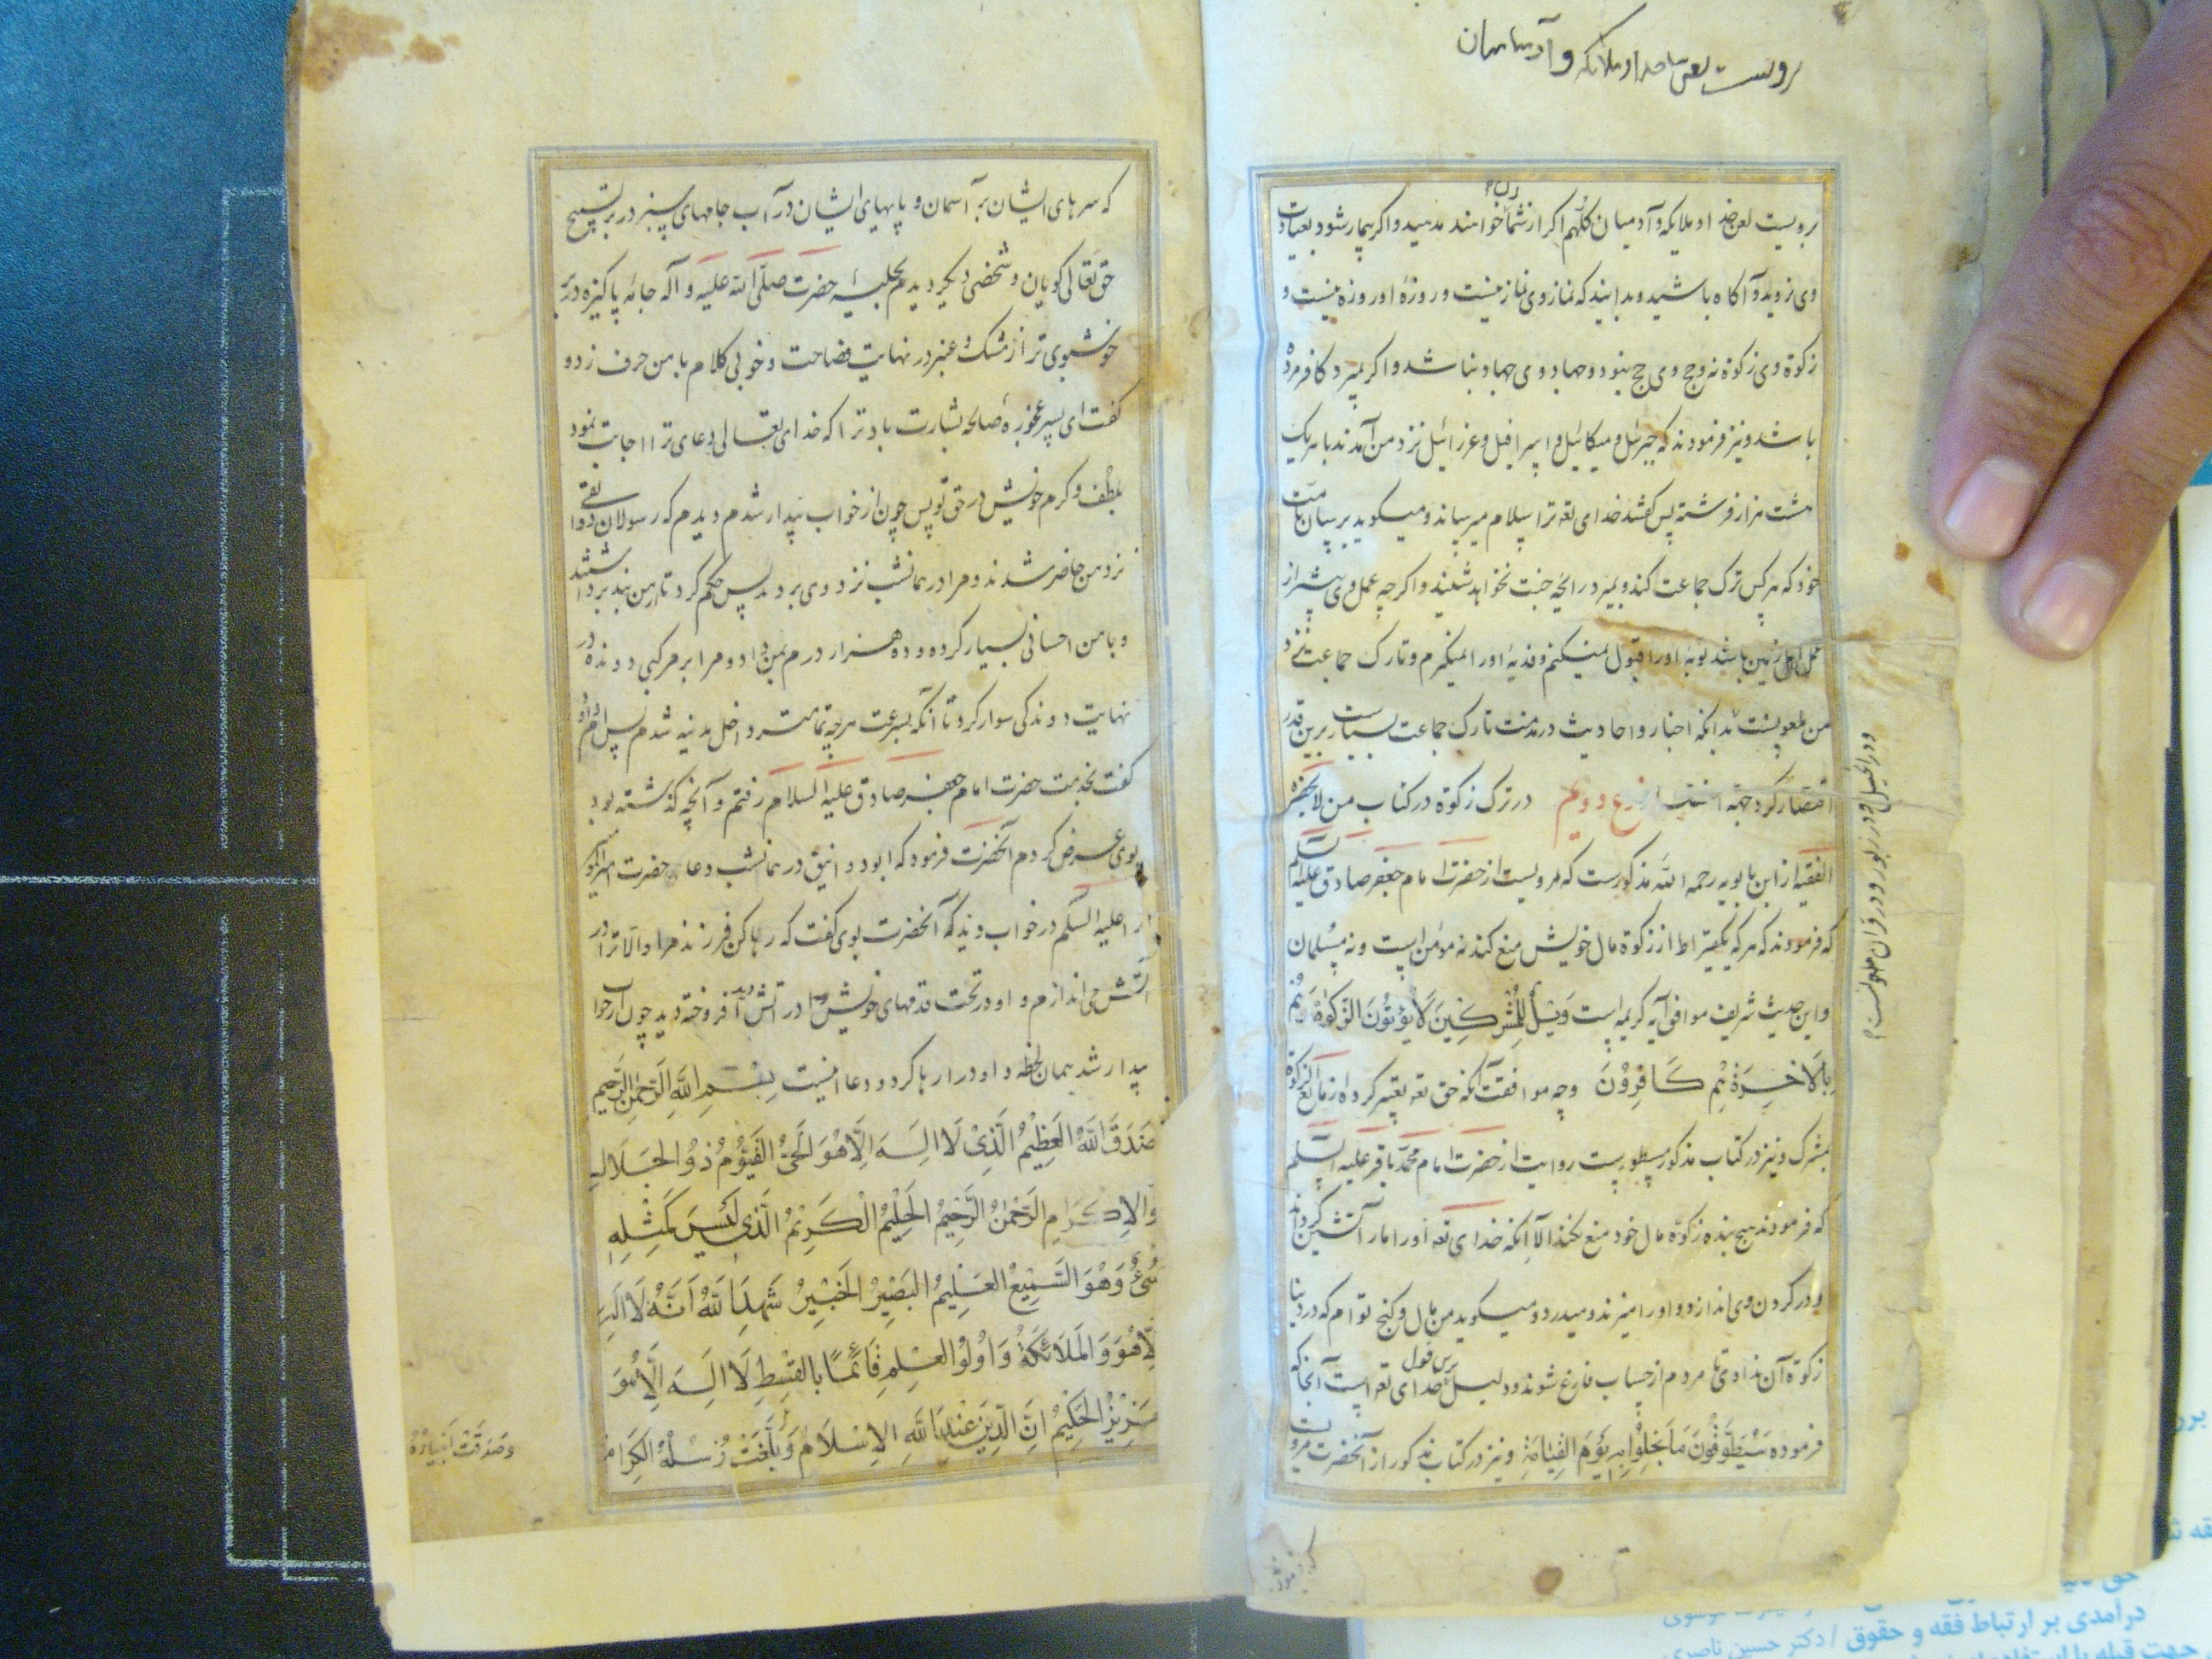 بروست لعن خدا و ملائکه و آدمیان
برویست لعن خدا و ملایکه و آدمیان کلّهم اکر از شما خواهند مدهید و اکر بیمار شود بعیادت
وی نروید و آکاه باشید و بدانید که نماز وی نماز نیست و روزهٔ او روزه نیست و
زکوة وی زکوة نه و حج وی حج نبود و جهاد وی جهاد نباشد و اکر بمیرد کافر مرده
باشد و نیز فرمودند که جبرئیل و میکائیل و اسرافیل و عزرائیل نزد من آمدند با هر یک
هشت هزار فرشته پس کفتند خدای تعه ترا سلام میرساند و میکوید برسان بامّت
خود که هر کس ترک جماعت کند و بمیرد رایحهٔ جنت نخواهد شنید و اکر چه عمل وی بیشتر از
عمل اهل زمین باشد توبهٔ او را قبول نمیکنم و فدیهٔ او را نمیکیرم و تارک جماعت نزد
من ملعونست بدانکه اخبار و احادیث در مذمت تارک جماعت بسیارست برین قدر
اقتصار کرد جهة دویم در ترک زکوة در کتاب من لایحضره
الفقیه از ابن بابویه رحمه الله مذکورست که مرویست از حضرت امام جعفر صادق علیه السّلم
که فرمودند که هر که یکقیراط از زکوة مال خویش منع کند نه مؤمن است و نه مسلمان
و این حدیث شریف موافق آیهٔ کریمه است وَیْلٌ لِلْمُشْرِکِینَ لَا یُؤْتُونَ الزَّکوٰةَ وَهُمْ
بِالْآخِرَةِ هُمْ کَافِرُوْنَ وجه موافقت آنکه حق تعه تعبیر کرده از مانع الزکوة
بمشرک و نیز در کتاب مذکور مسطورست روایت از حضرت امام محمّد باقر علیه السّلم
که فرمودند هیچ بنده زکوة مال خود منع نکند الّا آنکه خدای تعه او را مار آتشین کرداند
و در کردن وی اندازد و او را میزند و میدرد و میکوید من مال و کنج توام که در دنیا
زکوة آن ندادی تا مردم از حساب فارغ شوند و دلیل برین قول خدای تعه است آنجا که
فرموده سَیُطَوَّقُونَ مَا بَخِلُوْا بِهِ یَوْمَ الْقِیٰامَةِ و نیز در کتاب مذکور از آنحضرت مرویست
که سرهای ایشان بر آسمان و پایهای ایشان در آب جامهای سبز در بر تسبیح
حق تعالی کویان و شخصی دیکر دیدم بحلیهٔ حضرت صلّی الله علیه و آله جامهٔ پاکیزه در بر
خوشبوی تر از مشک و عنبر در نهایت فصاحت و خوبی کلام با من حرف زد و
کفت ای پسر عجوزهٔ صالحه بشارت باد ترا که خدای تعالی دعای ترا اجابت نمود
بلطف و کرم خویش در حق تو پس چون از خواب بیدار شدم دیدم که رسولان دوانقی
نزد من حاضر شدند و مرا در همانشب نزد وی بردند پس حکم کرد تا از من بند برداشتند
و با من احسانی بسیار کرده و ده هزار درم بمن داد و مرا بر مرکبی دونده در
نهایت دوندکی سوار کرد تا آنکه بسرعت هر چه تمامتر داخل مدینه شدم پس ام داود
کفت بخدمت حضرت امام جعفر صادق علیه السلام رفتم و آنچه کذشته بود
بوی عرض کردم آنحضرت فرمود که ابو دوانیق در همانشب دعا حضرت امیرالمؤ
را علیه السلم در خواب دید که آنحضرت بوی کفت که رها کن فرزند مرا والّا ترا در
آتش می اندازم و او در تحت قدمهای خویش در آتش افروخته دید چون از خواب
بیدار شد همان لحظه داود را رها کرد و دعا اینست بِسْمِ اللّٰهِ الرَّحْمٰنِ الرَّحِیمِ
صَدَقَ اللّٰهُ الْعَظِیْمُ الَّذِیْ لَا اِلٰهَ اِلَّا هُوَ الْحَیُّ الْقَیُّوْمُ ذُو الْجَلَالِ
وَالْاِکْرَامِ الرَّحْمٰنُ الرَّحِیْمُ الْحَلِیْمُ الْکَرِیْمُ الَّذِی لَیْسَ کَمِثْلِهِ
شَیْءٌ وَهُوَ السَّمِیْعُ الْعَلِیْمُ الْبَصِیْرُ الْخَبِیْرُ شَهِدَ اللّٰهُ اَنَّهُ لَا اِلٰهَ
اِلَّا هُوَ وَالْمَلَائِکَةُ وَاُولُوا الْعِلْمِ قَائِمًا بِالْقِسْطِ لَا اِلٰهَ اِلَّا هُوَ
الْعَزِیْزُ الْحَکِیْمُ اِنَّ الدِّیْنَ عِنْدَ اللّٰهِ الْاِسْلَامُ وَبَلَّغَتْ رُسُلُهُ الْکِرَامُ
وَصَدَقَتْ اَنْبِیَاؤُهُ
درآمدی بر ارتباط فقه و حقوق / دکتر حسین ناصری